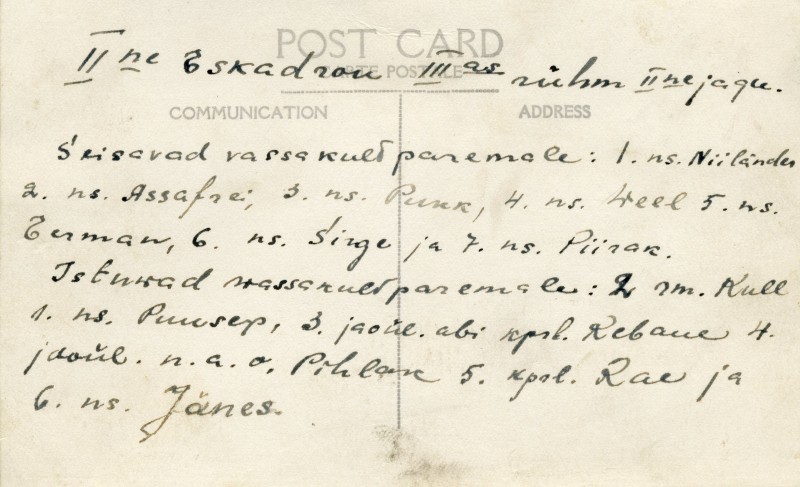 POST CARD
CARTE POSTALE
IIne Eskadron IIIas rühm IIne jagu.
COMMUNICATION
ADDRESS
Seisavad vassakult paremale: 1. ns. Niiländer
2. ns. Assafrei, 3. ns. Punk, 4. ns. Weel 5. ns.
Terman, 6. ns. Sirge ja 7. ns. Piirak.
Istuwad wassakult paremale: 2 rm. Kull
1. ns. Puusep, 3. jaoül. abi kprl. Rebane 4.
jaoül. n.a.o. Pihlak 5. kprl. Rae ja
6. ns. Jänes.